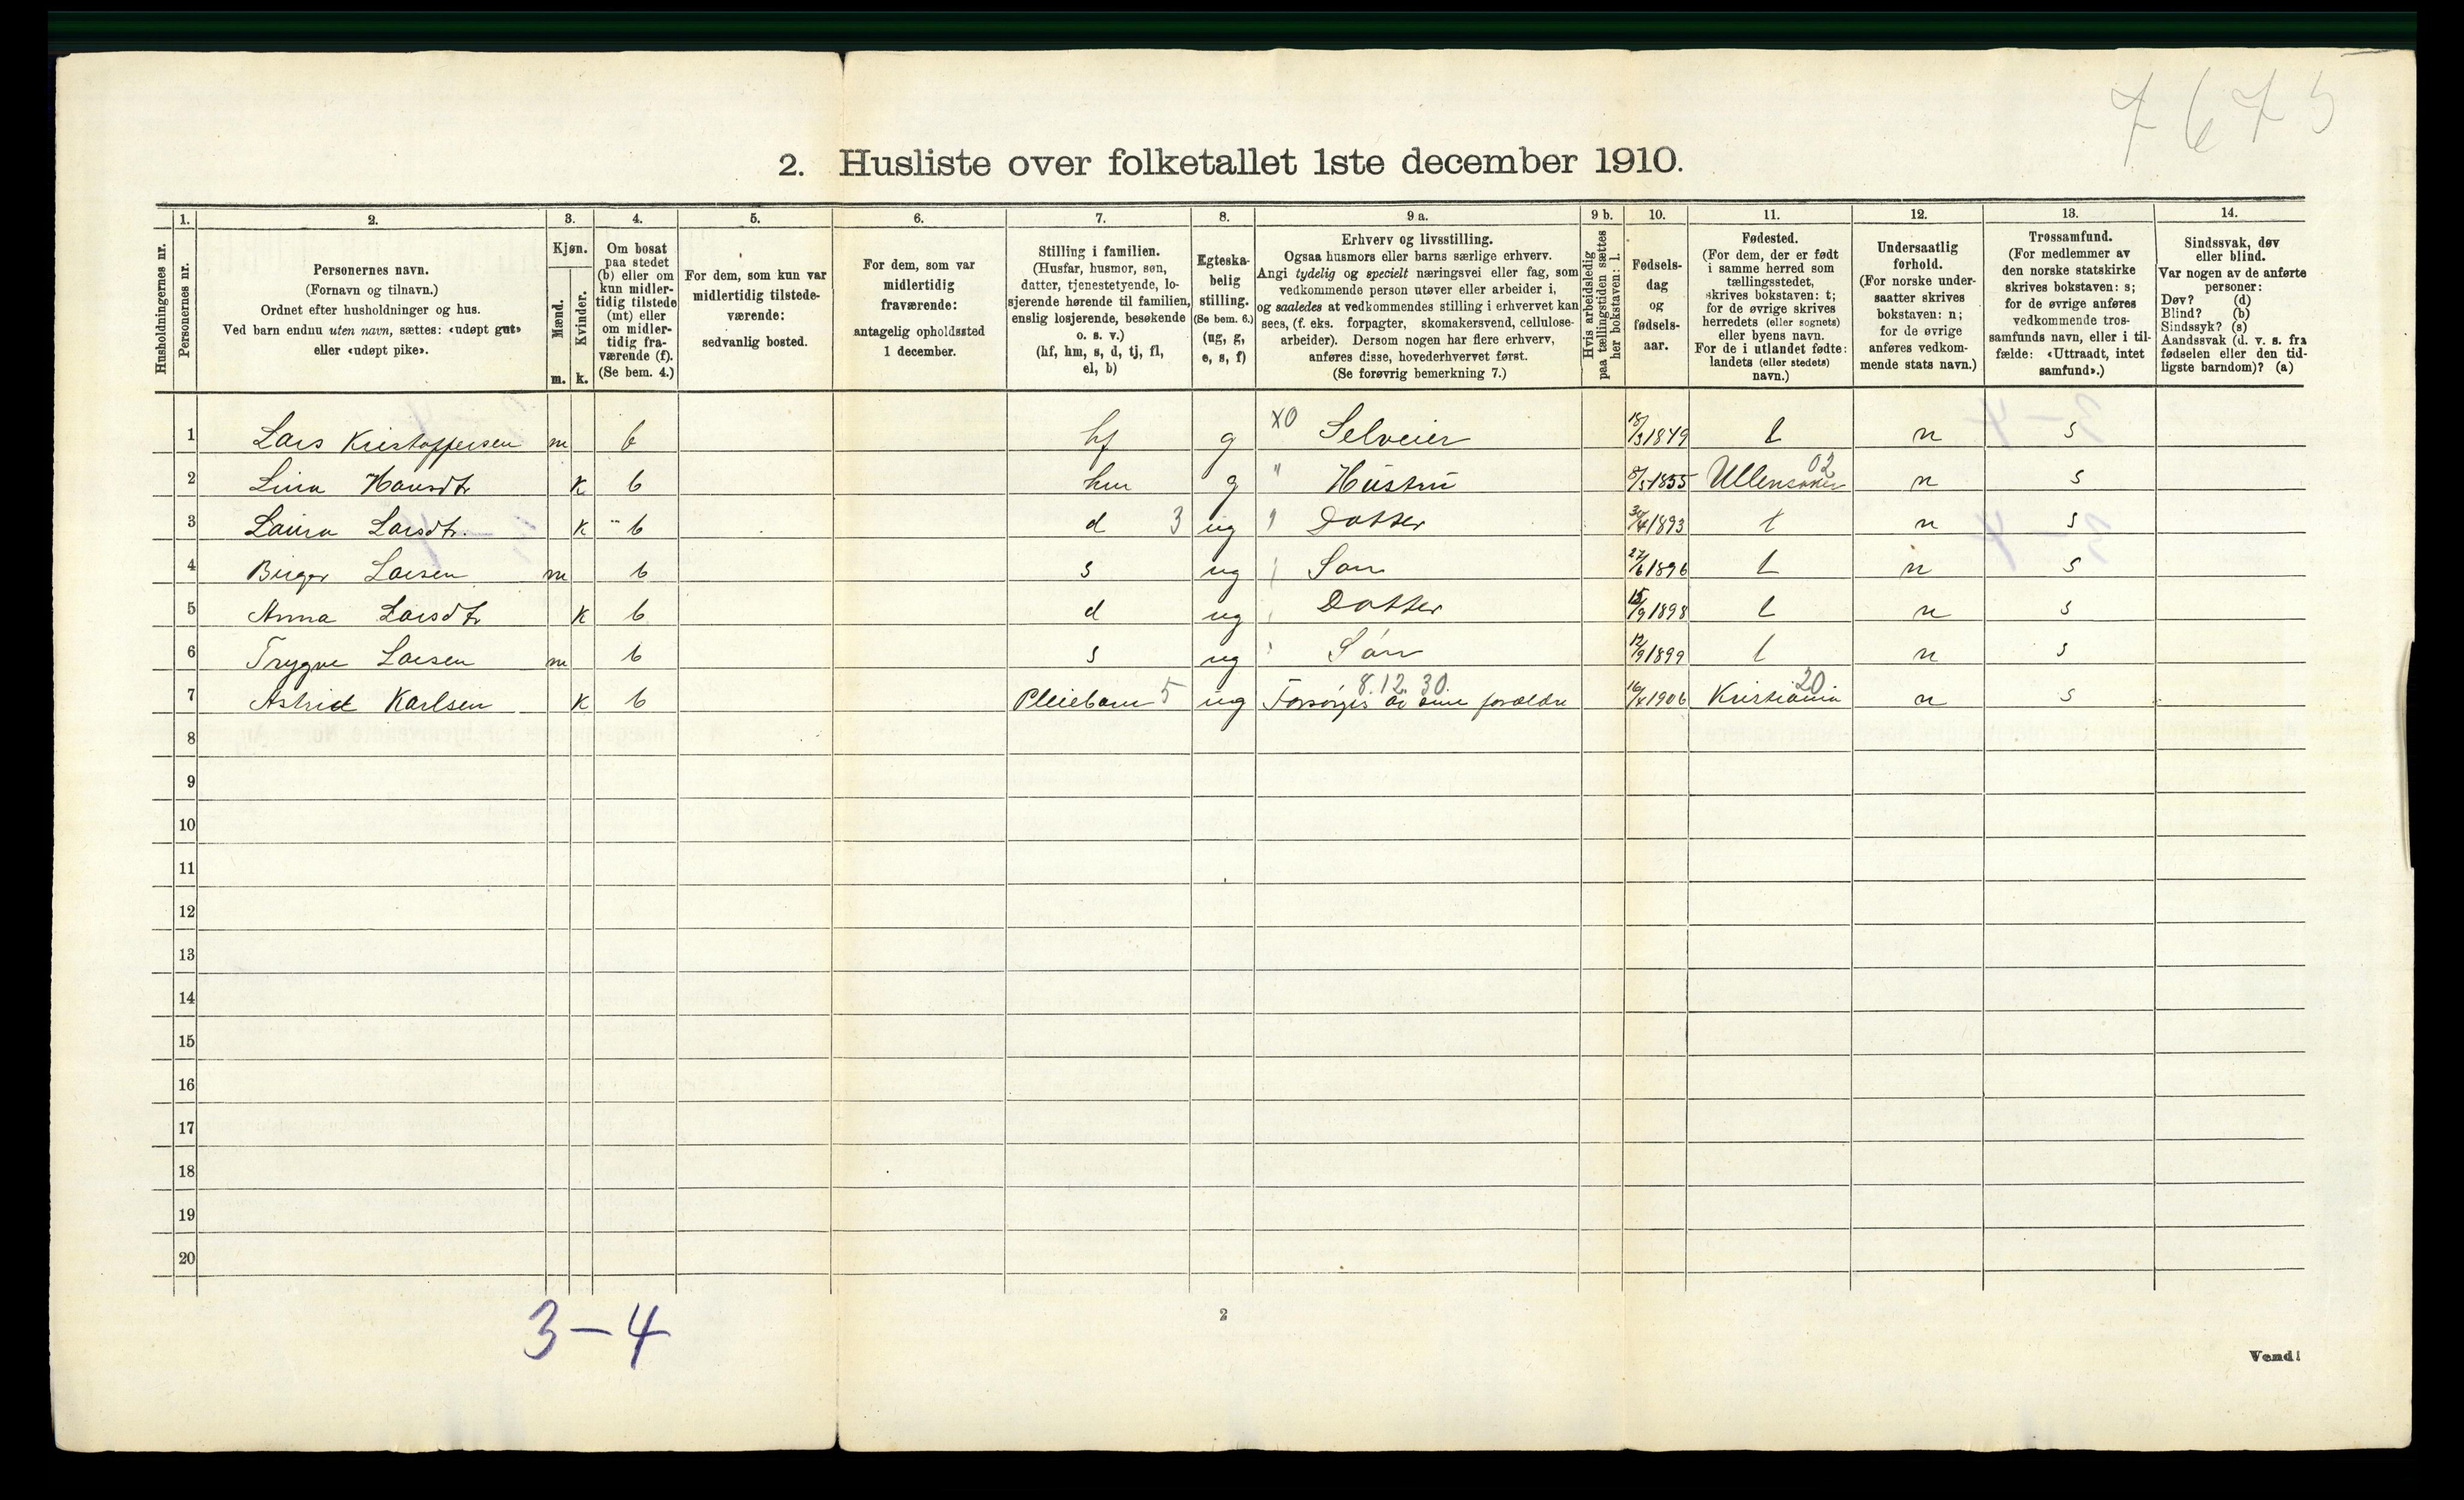 7675
2. Husliste over folketallet 1ste december 1910.
Husholdningernes nr.
1.
Personernes nr.
2.
Personernes navn.
(Fornavn og tilnavn.)
Ordnet efter husholdninger og hus.
Ved barn endnu uten navn, sættes: «udøpt gut»
eller «udøpt pike».
3.
Kjøn.
Mænd.
Kvinder.
m. k.
4.
Om bosat
paa stedet
(b) eller om
kun midler-
tidig tilstede
(mt) eller
om midler-
tidig fra-
værende (f).
(Se bem. 4.)
5.
For dem, som kun var
midlertidig tilstede-
værende:
sedvanlig bosted.
6.
For dem, som var
midlertidig
fraværende:
antagelig opholdssted
1 december.
7.
Stilling i familien.
(Husfar, husmor, søn,
datter, tjenestetyende, lo-
sjerende hørende til familien,
enslig losjerende, besøkende
o. s. v.)
(hf, hm, s, d, tj, fl,
el, b)
8.
Egteska-
belig
stilling.
(Se bem. 6.)
(ug, g,
e, s, f)
9 a.
Erhverv og livsstilling.
Ogsaa husmors eller barns særlige erhverv.
Angi tydelig og specielt næringsvei eller fag, som
vedkommende person utøver eller arbeider i,
og saaledes at vedkommendes stilling i erhvervet kan
sees, (f. eks. forpagter, skomakersvend, cellulose-
arbeider). Dersom nogen har flere erhverv,
anføres disse, hovederhvervet først.
(Se forøvrig bemerkning 7.)
9 b.
Hvis arbeidsledig
paa tællingstiden sættes
her bokstaven: l.
10.
Fødsels-
dag
og
fødsels-
aar.
11.
Fødested.
(For dem, der er født
i samme herred som
tællingsstedet,
skrives bokstaven: t;
for de øvrige skrives
herredets (eller sognets)
eller byens navn.
For de i utlandet fødte:
landets (eller stedets)
navn.)
12.
Undersaatlig
forhold.
(For norske under-
saatter skrives
bokstaven: n;
for de øvrige
anføres vedkom-
mende stats navn.)
13.
Trossamfund.
(For medlemmer av
den norske statskirke
skrives bokstaven: s;
for de øvrige anføres
vedkommende tros-
samfunds navn, eller i til-
fælde: «Uttraadt, intet
samfund».)
14.
Sindssvak, døv
eller blind.
Var nogen av de anførte
personer:
Døv? (d)
Blind? (b)
Sindssyk? (s)
Aandssvak (d. v. s. fra
fødselen eller den tid-
ligste barndom)? (a)
1 Lars Kristoffersen m b hf g X0 Selveier 18/3 1849 t n s
2 Lina Hansdtr k b hm g " Hustru 8/5 1855 Ullensaker 02 n s
3 Laura Larsdtr. k b d 3 ug " Datter 30/4 1893 t n s
4 Birger Larsen m b s ug Søn 27/6 1896 t n s
5 Anna Larsdtr k b d ug Datter 15/9 1898 t n s
6 Trygve Larsen m b s ug Søn 12/9 1899 t n s
7 Astrid Karlsen k b Pleiebarn 5 ug 8.12.30. Forsørges av sine forældre 16/4 1906 Kristiania 20 n s
8
9
10
11
12
13
14
15
16
17
18
19
20
3-4
2
Vend!